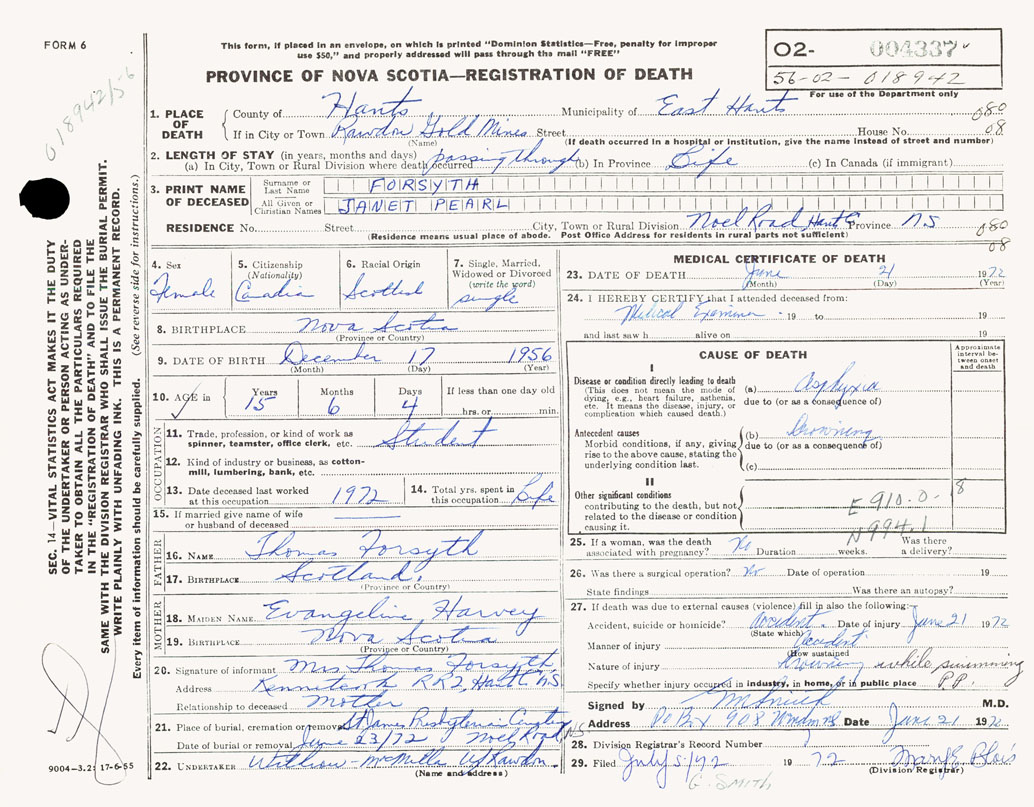 FORM 6
This form, if placed in an envelope, on which is printed "Dominion Statistics—Free, penalty for improper
use $50," and properly addressed will pass through the mail "FREE"
PROVINCE OF NOVA SCOTIA—REGISTRATION OF DEATH
O2- 004337
56-02-018942
For use of the Department only
018942/5-6
1. PLACE OF DEATH
County of Hants Municipality of East Hants 080
If in City or Town Rawdon Gold Mines Street House No. 08
(Name) (If death occurred in a hospital or institution, give the name instead of street and number)
2. LENGTH OF STAY (in years, months and days)
(a) In City, Town or Rural Division where death occurred passing through (b) In Province Life (c) In Canada (if immigrant)
3. PRINT NAME OF DECEASED
Surname or Last Name FORSYTH
All Given or Christian Names JANET PEARL
RESIDENCE No. Street City, Town or Rural Division Noel Road, Hants Province NS 080
(Residence means usual place of abode. Post Office Address for residents in rural parts not sufficient) 08
4. Sex Female
5. Citizenship (Nationality) Canadia
6. Racial Origin Scottish
7. Single, Married, Widowed or Divorced (write the word) single
8. BIRTHPLACE Nova Scotia
(Province or Country)
9. DATE OF BIRTH December 17 1956
(Month) (Day) (Year)
10. AGE in Years 15 Months 6 Days 4 If less than one day old hrs. or min.
OCCUPATION
11. Trade, profession, or kind of work as spinner, teamster, office clerk, etc. Student
12. Kind of industry or business, as cotton-mill, lumbering, bank, etc.
13. Date deceased last worked at this occupation 1972
14. Total yrs. spent in this occupation Life
15. If married give name of wife or husband of deceased
FATHER
16. NAME Thomas Forsyth
17. BIRTHPLACE Scotland.
(Province or Country)
MOTHER
18. MAIDEN NAME Evangeline Harvey
19. BIRTHPLACE Nova Scotia
(Province or Country)
20. Signature of informant Mrs Thomas Forsyth
Address Kennetcook RR2, Hants NS
Relationship to deceased Mother
21. Place of burial, cremation or removal St James Presbyterian Cemetery
Date of burial or removal June 23/72 Noel Road NS.
22. UNDERTAKER
(Name and address)
MEDICAL CERTIFICATE OF DEATH
23. DATE OF DEATH June 21 1972
(Month) (Day) (Year)
24. I HEREBY CERTIFY that I attended deceased from:
Medical Examiner 19 to 19
and last saw h alive on 19
CAUSE OF DEATH
Approximate interval between onset and death
I
Disease or condition directly leading to death
(This does not mean the mode of dying, e.g., heart failure, asthenia, etc. It means the disease, injury, or complication which caused death.)
(a) Asphyxia
due to (or as a consequence of)
Antecedent causes
Morbid conditions, if any, giving rise to the above cause, stating the underlying condition last.
(b) Drowning
due to (or as a consequence of)
(c)
II
Other significant conditions
contributing to the death, but not related to the disease or condition causing it.
E 910.0- 8
N994.1
25. If a woman, was the death associated with pregnancy? No Duration weeks. Was there a delivery?
26. Was there a surgical operation? No Date of operation 19
State findings Was there an autopsy?
27. If death was due to external causes (violence) fill in also the following:
Accident, suicide or homicide? Accident. Date of injury June 21 1972
(State which)
Manner of injury Accident
(How sustained)
Nature of injury Drowning while swimming
Specify whether injury occurred in industry, in home, or in public place P.P.
Signed by M.D.
Address PO Bx 908 Date June 21 1972
28. Division Registrar's Record Number
29. Filed July 5/72 1972 Mary E Blois
(Division Registrar)
G. SMITH
SEC. 14—VITAL STATISTICS ACT MAKES IT THE DUTY
OF THE UNDERTAKER OR PERSON ACTING AS UNDER-
TAKER TO OBTAIN ALL THE PARTICULARS REQUIRED
IN THE "REGISTRATION OF DEATH" AND TO FILE THE
SAME WITH THE DIVISION REGISTRAR WHO SHALL ISSUE THE BURIAL PERMIT.
WRITE PLAINLY WITH UNFADING INK. THIS IS A PERMANENT RECORD.
Every item of information should be carefully supplied. (See reverse side for instructions.)
9004-3.2: 17-6-55